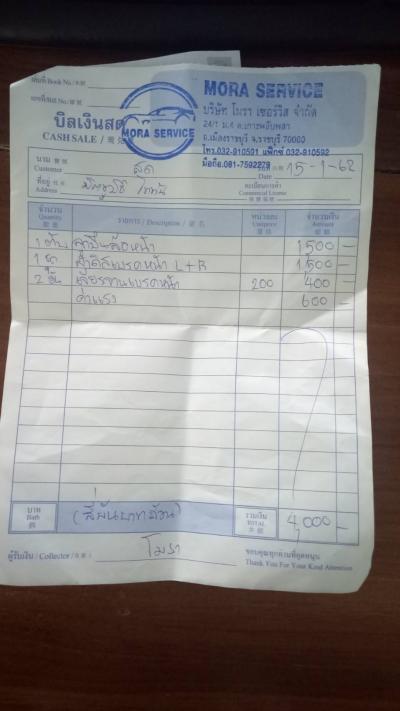 เล่มที่ Book No. / 本號
เลขที่ Bill No. / 單號
บิลเงินสด
CASH SALE /
MORA SERVICE
MORA SERVICE
บริษัท โมรา เซอร์วิส จำกัด
24/1 ม.4 ต.เกาะพลับพลา
อ.เมืองราชบุรี จ.ราชบุรี 70000
โทร.032-910591 แฟ็กซ์.032-910592
มือถือ.081-7592279
วันที่ Date 15-1-62
นาม Customer สด
ที่อยู่ Address มิตซูบิชิ
ทะเบียนการค้า
Commercial License
จำนวน Quantity
รายการ / Description /
หน่วยละ Unitprice
จำนวนเงิน Amount
1 ลูกปืนล้อหน้า 1,500 -
1 หน้า L+R 1,500 -
2 เจียรจานเบรคหน้า 200 400 -
ค่าแรง 600 -
บาท Bath (สี่พันบาทถ้วน) รวมเงิน TOTAL 4,000 -
ผู้รับเงิน / Collector / โมรา
ขอบคุณทุกท่านที่อุดหนุน
Thank You For Your Kind Attention